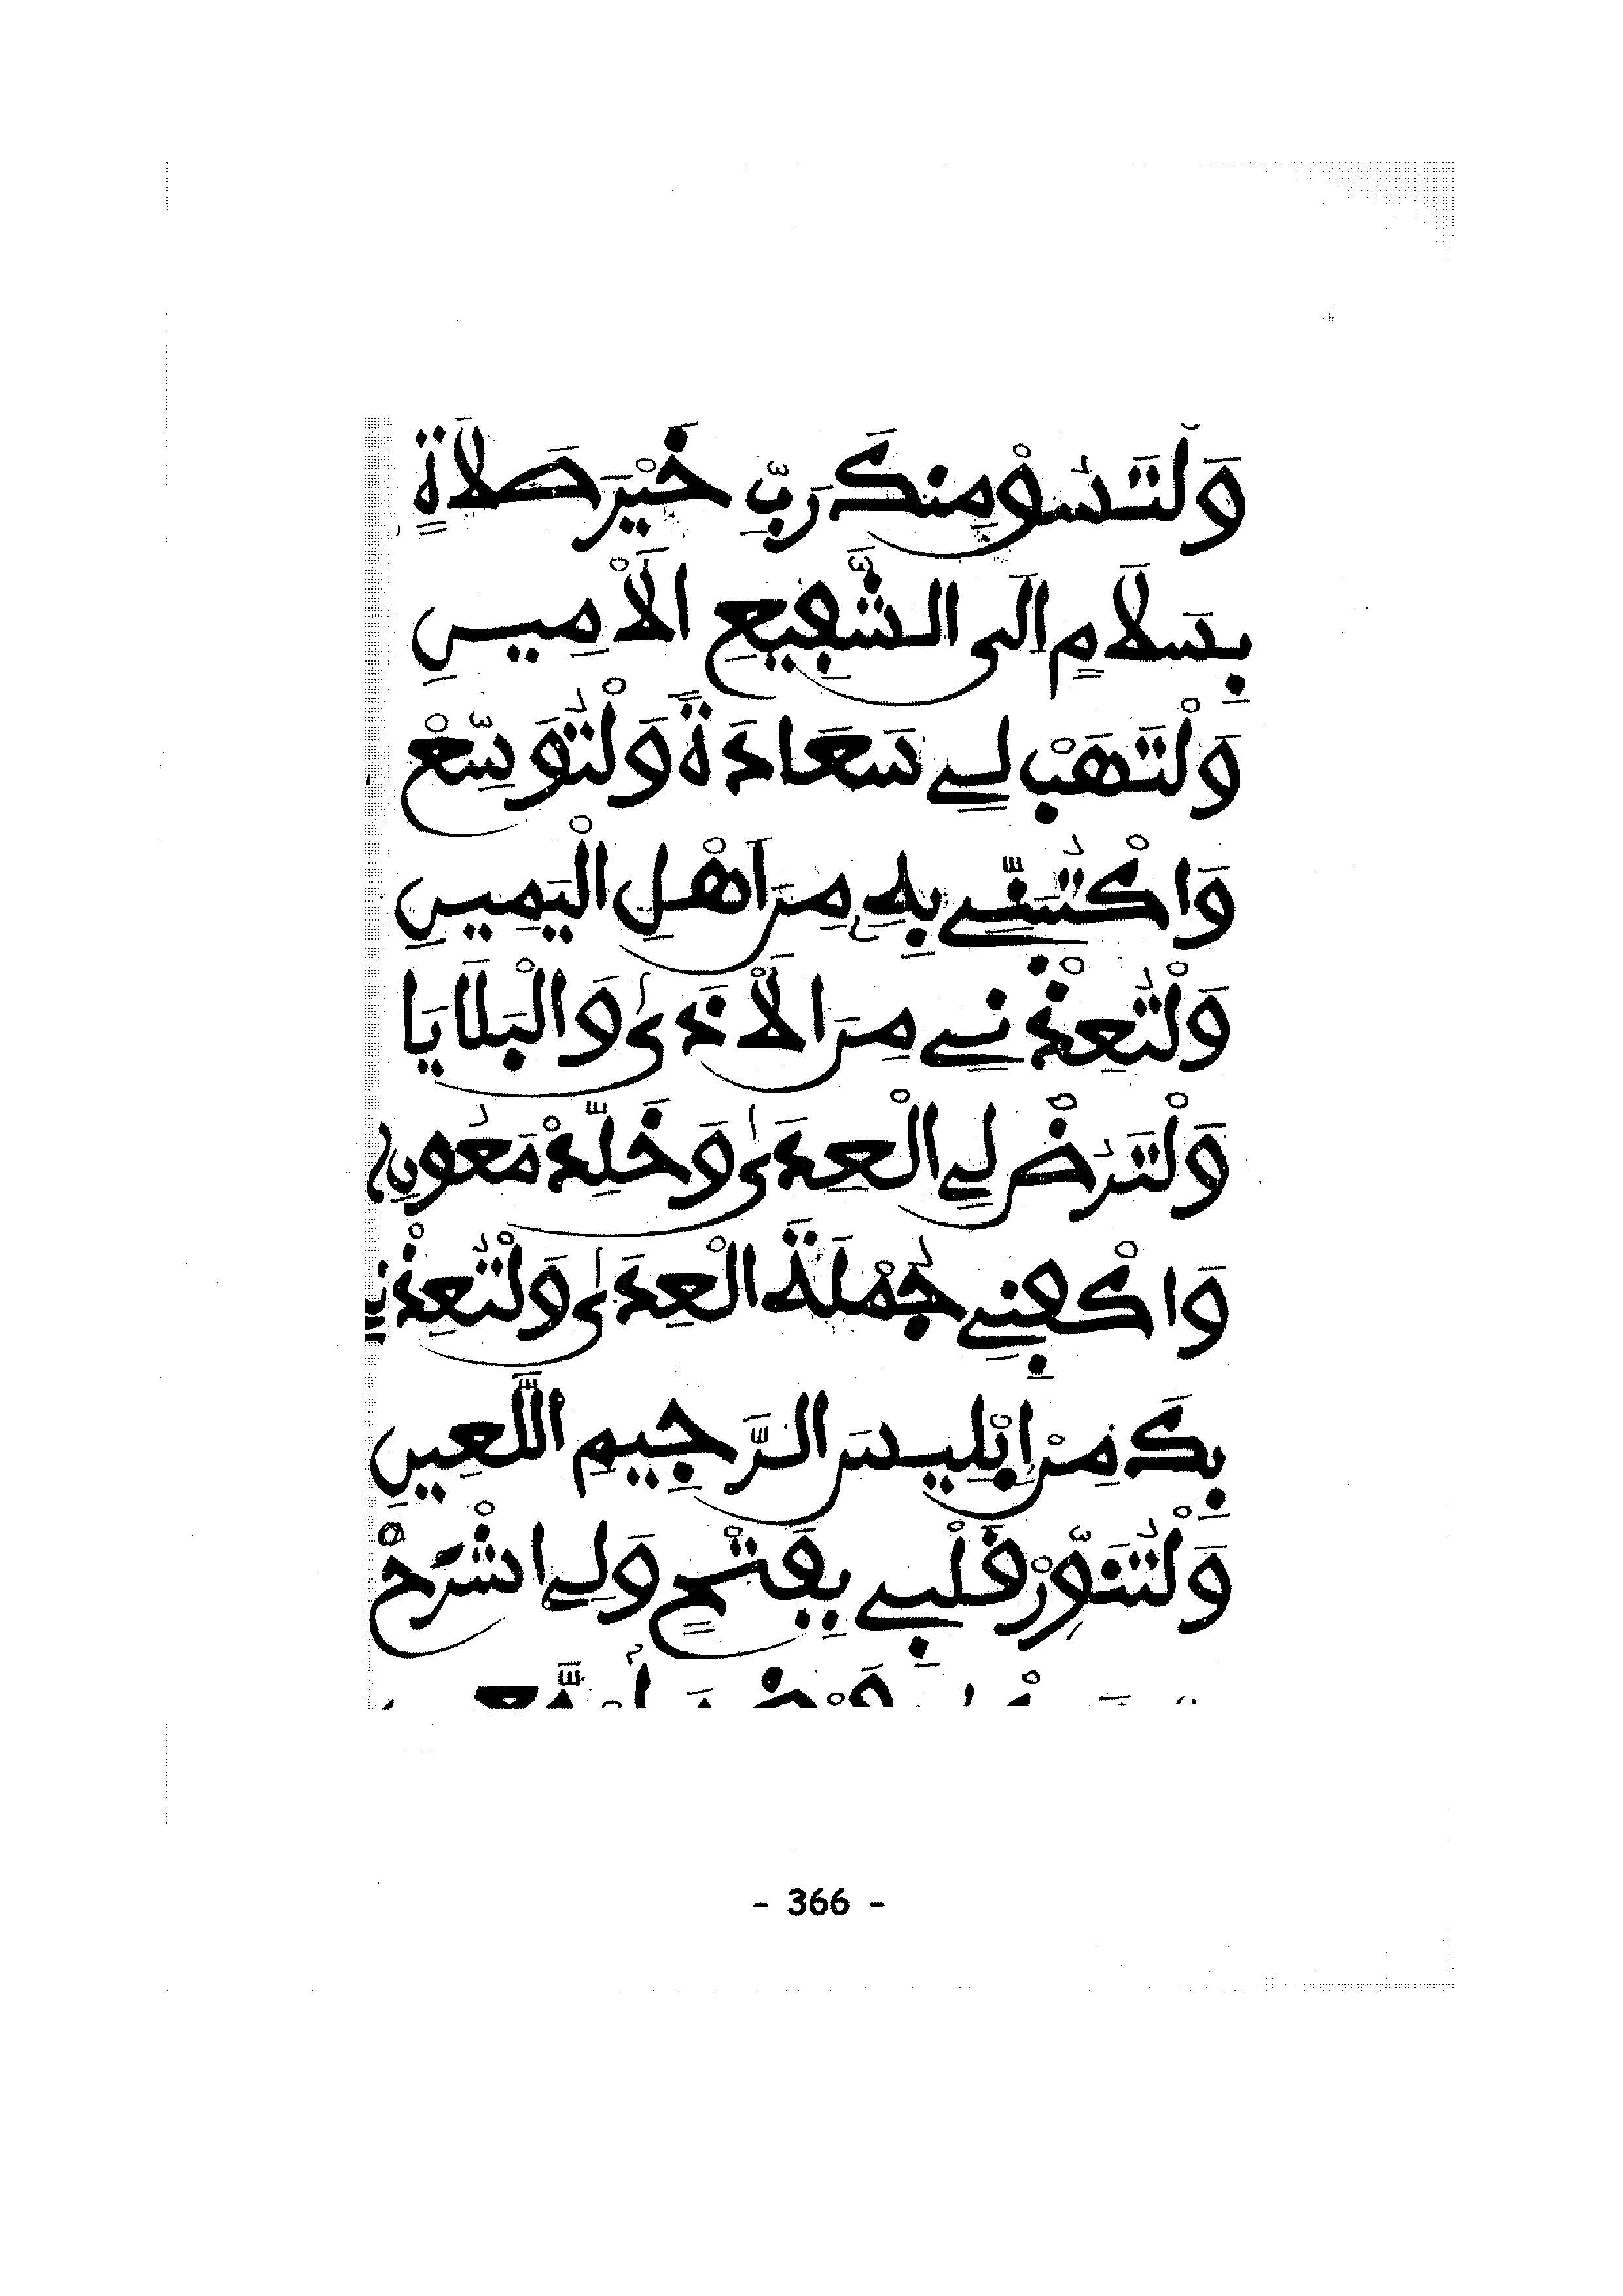 وَلْتَسُوْ مِنكَ رَبِّ خَيْرَ صَلَاةٍ
بِسَلَامٍ اِلَى الشَّفِيعِ الْاَمِينِ
وَلْتَهَبْ لِي سَعَادَةً وَلْتُوَسِّعْ
وَاكْتُبَنِّي بِهِ مِنَ اَهْلِ الْيَمِينِ
وَلْتُعِذْنِي مِنَ الْاَذَى وَالْبَلَايَا
وَلْتَرُضْ لِي الْعِدَى وَخَلِّدْ مَعُونِ
وَاكْفِنِي جُمْلَةَ الْعِدَى وَلْتُعِذْنِي
بِكَ مِنْ اِبْلِيسَ الرَّجِيمِ اللَّعِينِ
وَلْتُنَوِّرْ قَلْبِي بِفَتْحٍ وَلِي اشْرَحْ
- 366 -